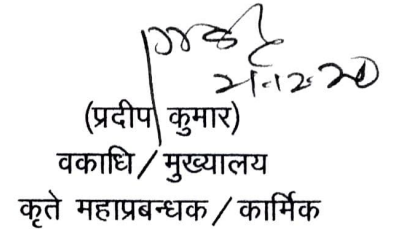 21.12.20
(प्रदीप कुमार)
वकाधि / मुख्यालय
कृते महाप्रबन्धक / कार्मिक